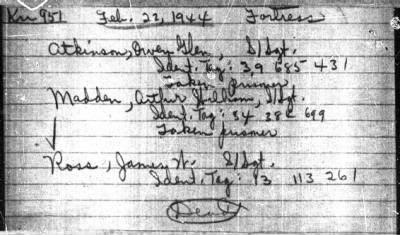 Ku 951 Feb. 22, 1944 Fortress
Atkinson, Owen Glen, S/Sgt.
Ident. Tag: 39 685 431
Taken prisoner
Madden, Arthur William, S/Sgt.
Ident. Tag: 34 385 699
Taken prisoner
Ross, James W. S/Sgt.
Ident. Tag: 13 113 261
Dead